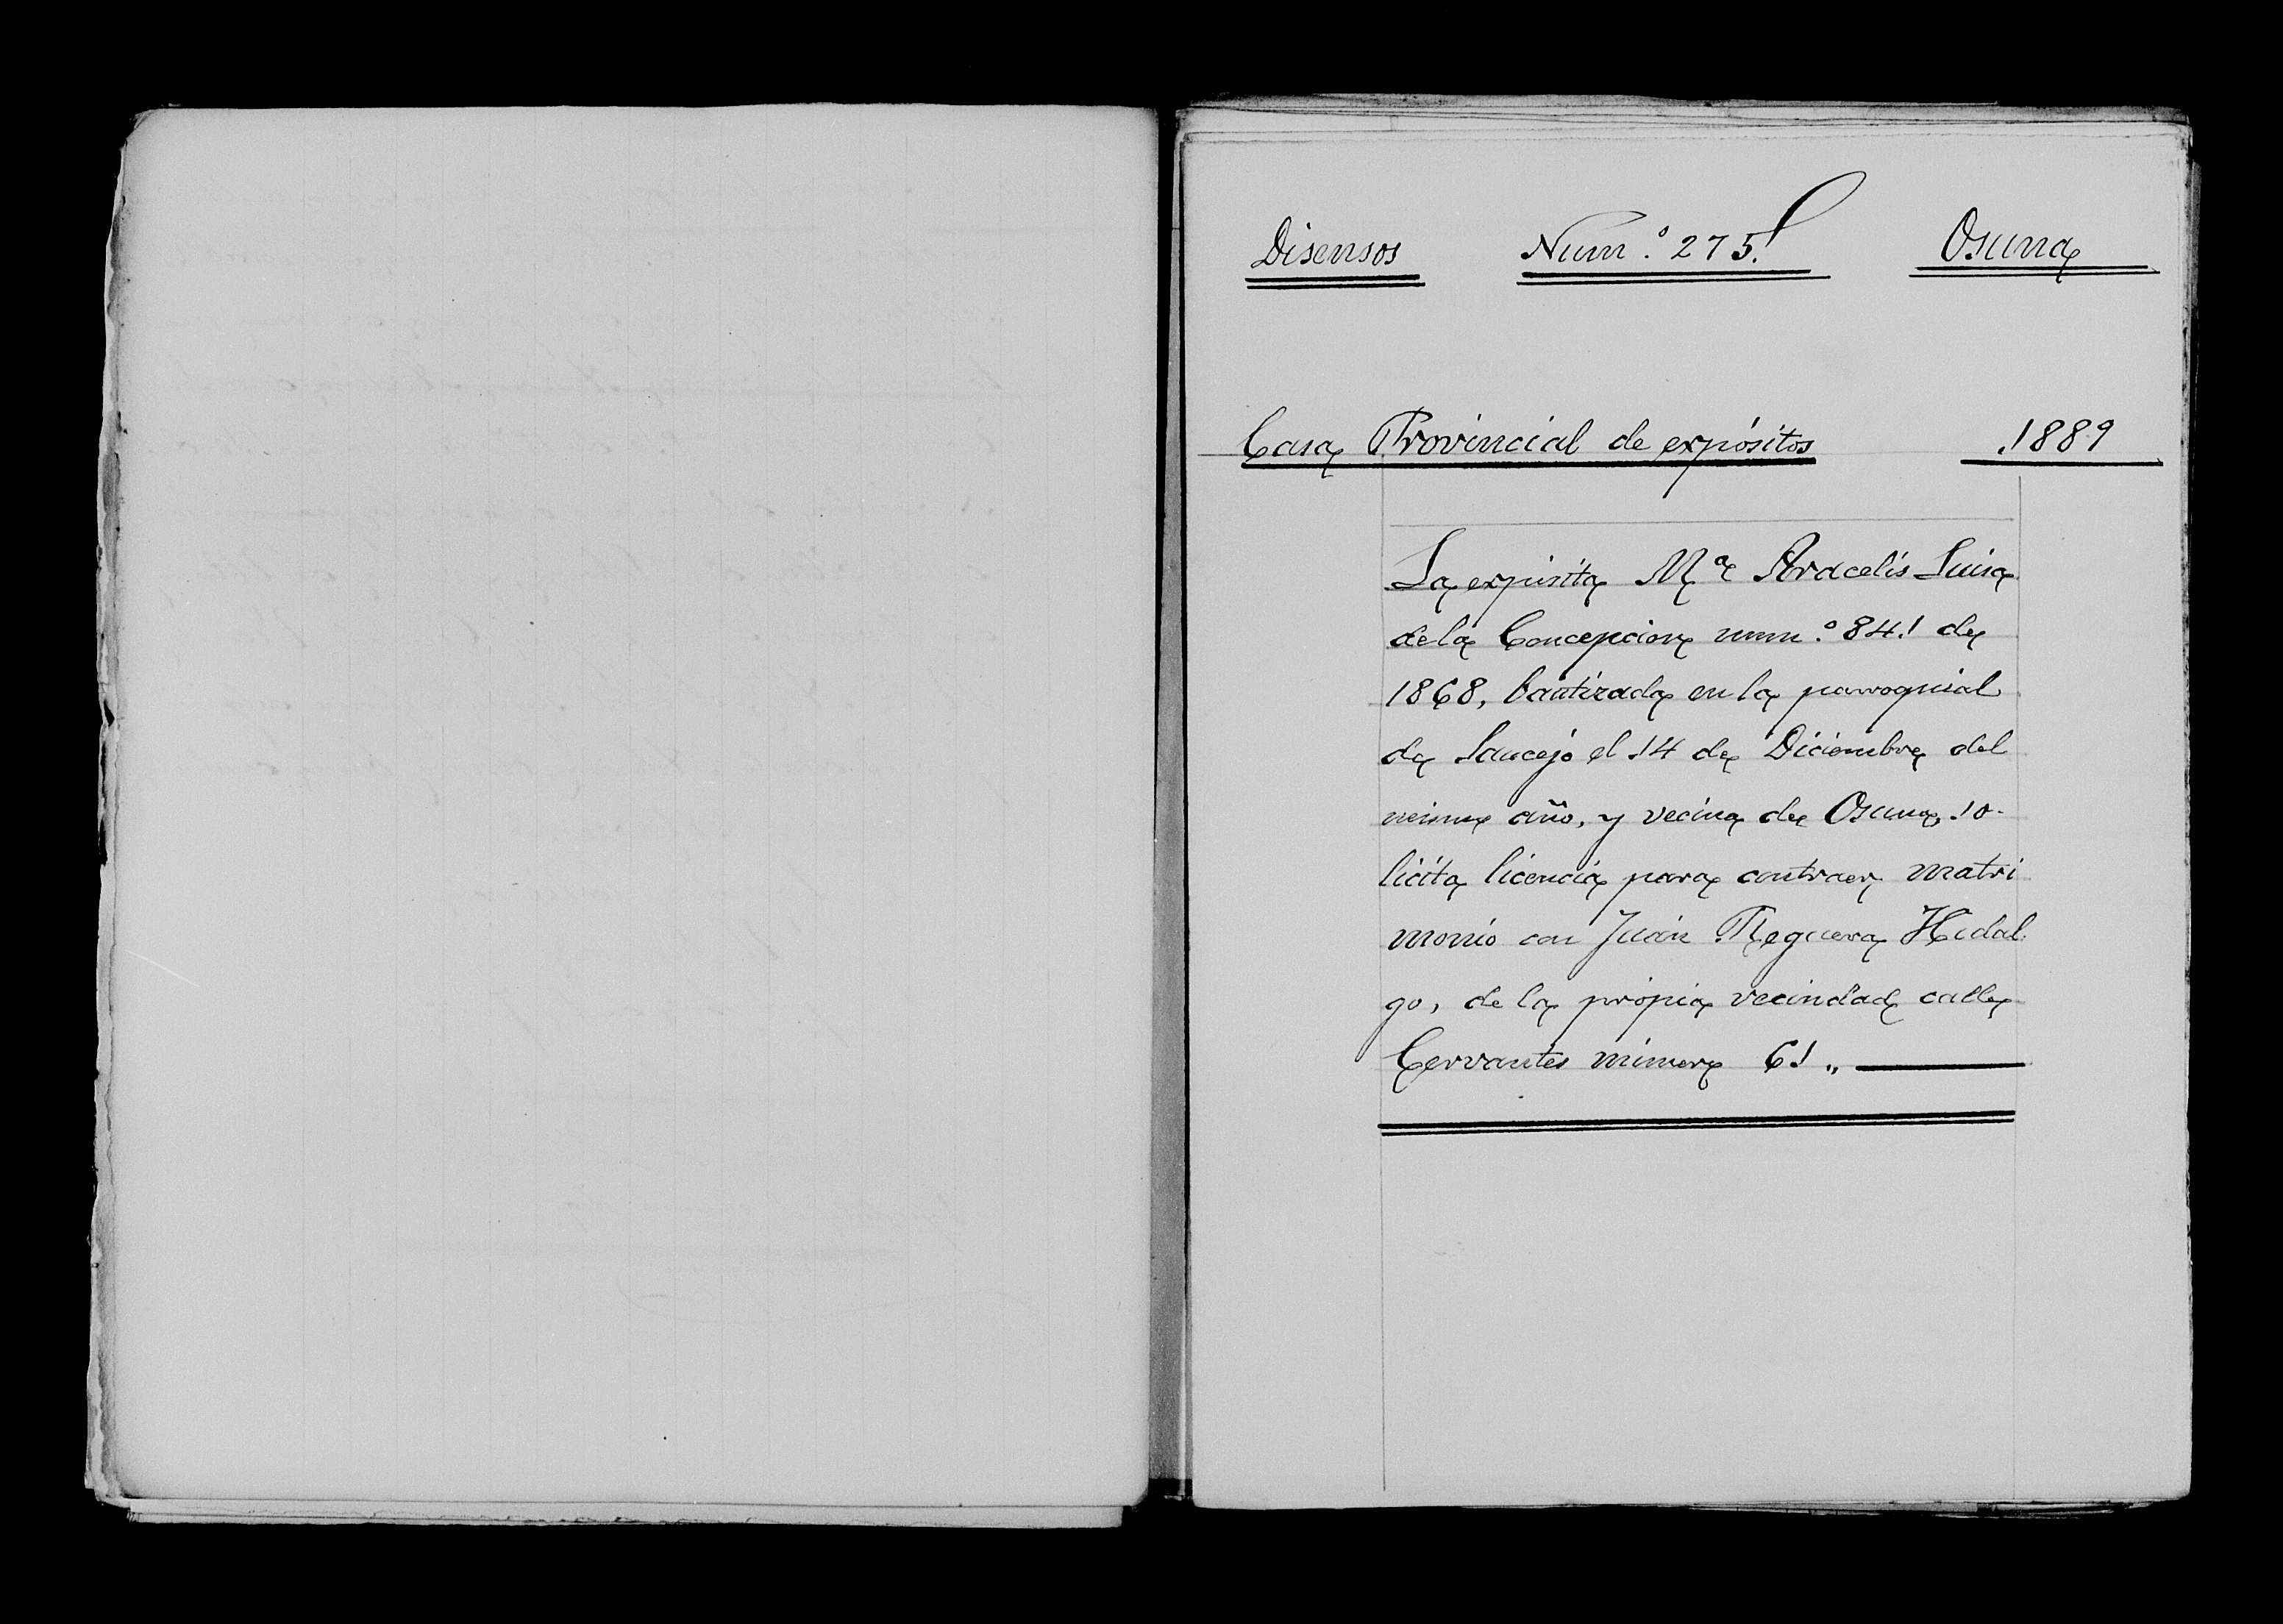 Disensos Num.º 275. Osuna
Casa Provincial de expósitos 1889
La expósita Mª Aracelis Luisa
de la Concepcion num.º 841 de
1868, bautizada en la parroquial
de Saucejo el 14 de Diciembre del
mismo año, y vecina de Osuna, so-
licita licencia para contraer matri
monio con Juan Reguera Hidal
go, de la propia vecindad calle
Cervantes número 61 „